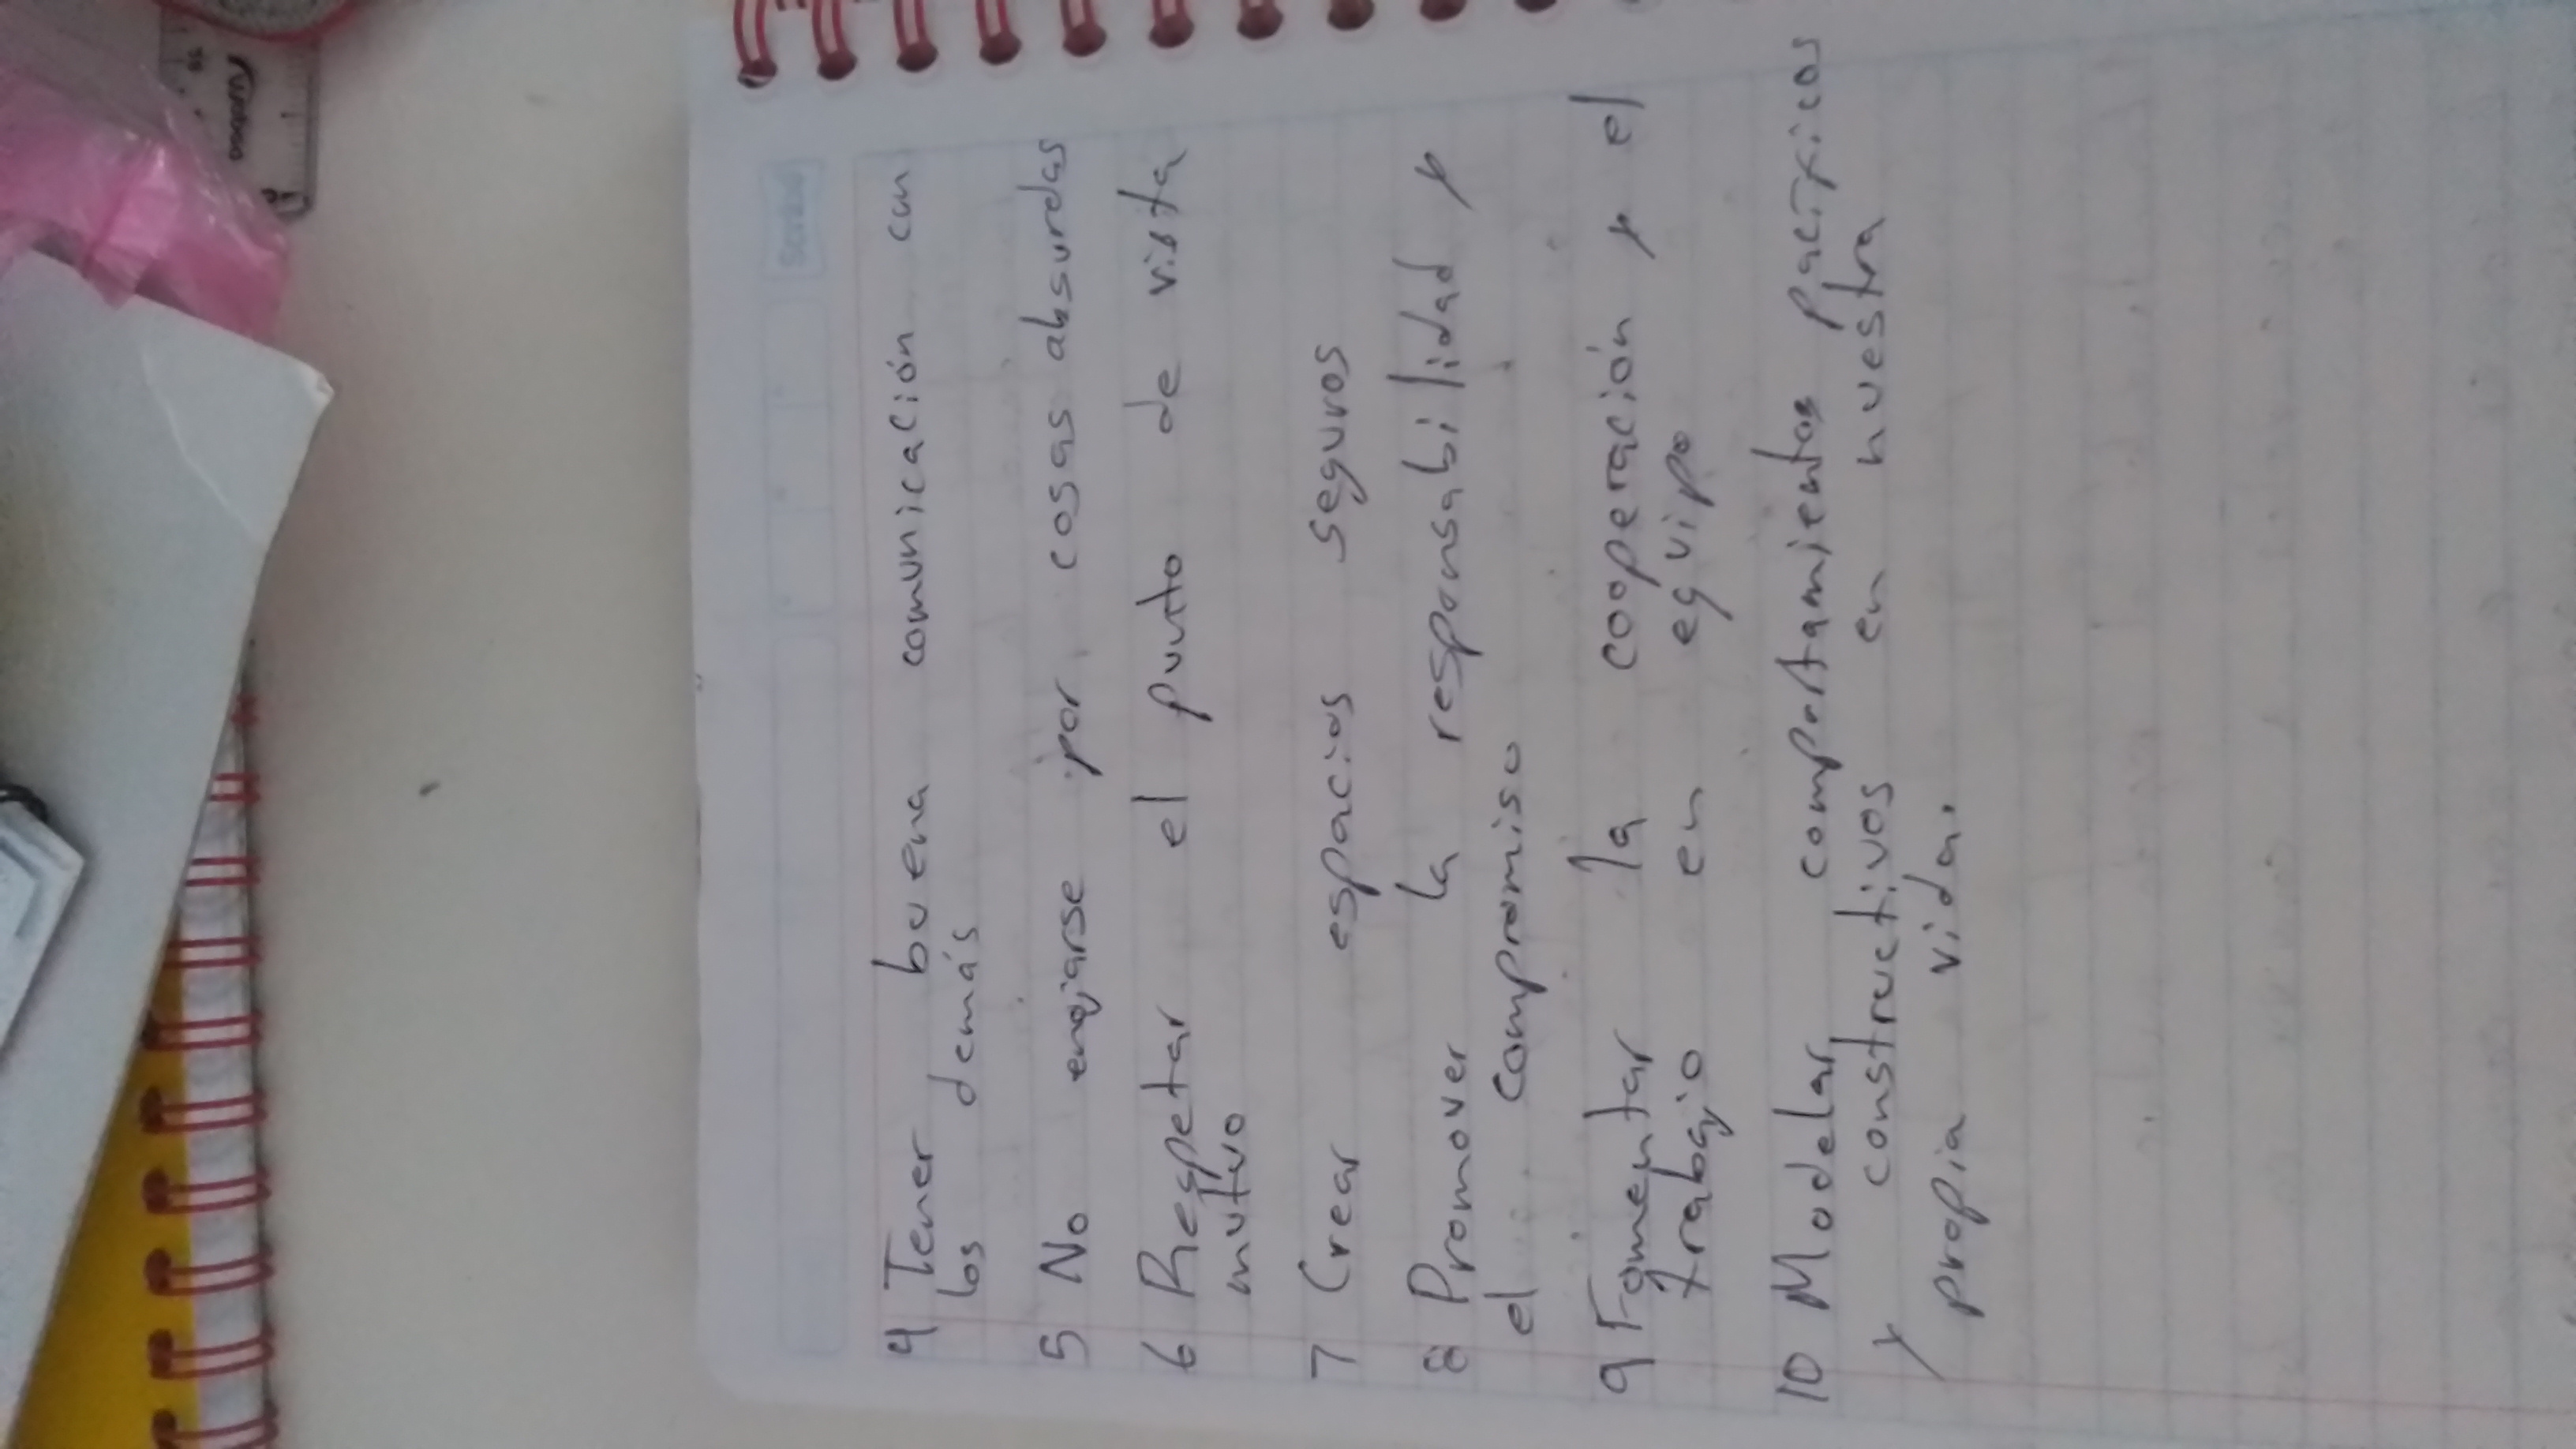 4 Tener buena comunicación con
los demás
5 No enojarse por cosas absurdas
6 Respetar el punto de vista
mutuo
7 Crear espacios seguros
8 Promover la responsabilidad y
el compromiso
9 Fomentar la cooperación y el
trabajo en equipo
10 Modelar comportamientos pacíficos
y constructivos en nuestra
propia vida.
Scribe